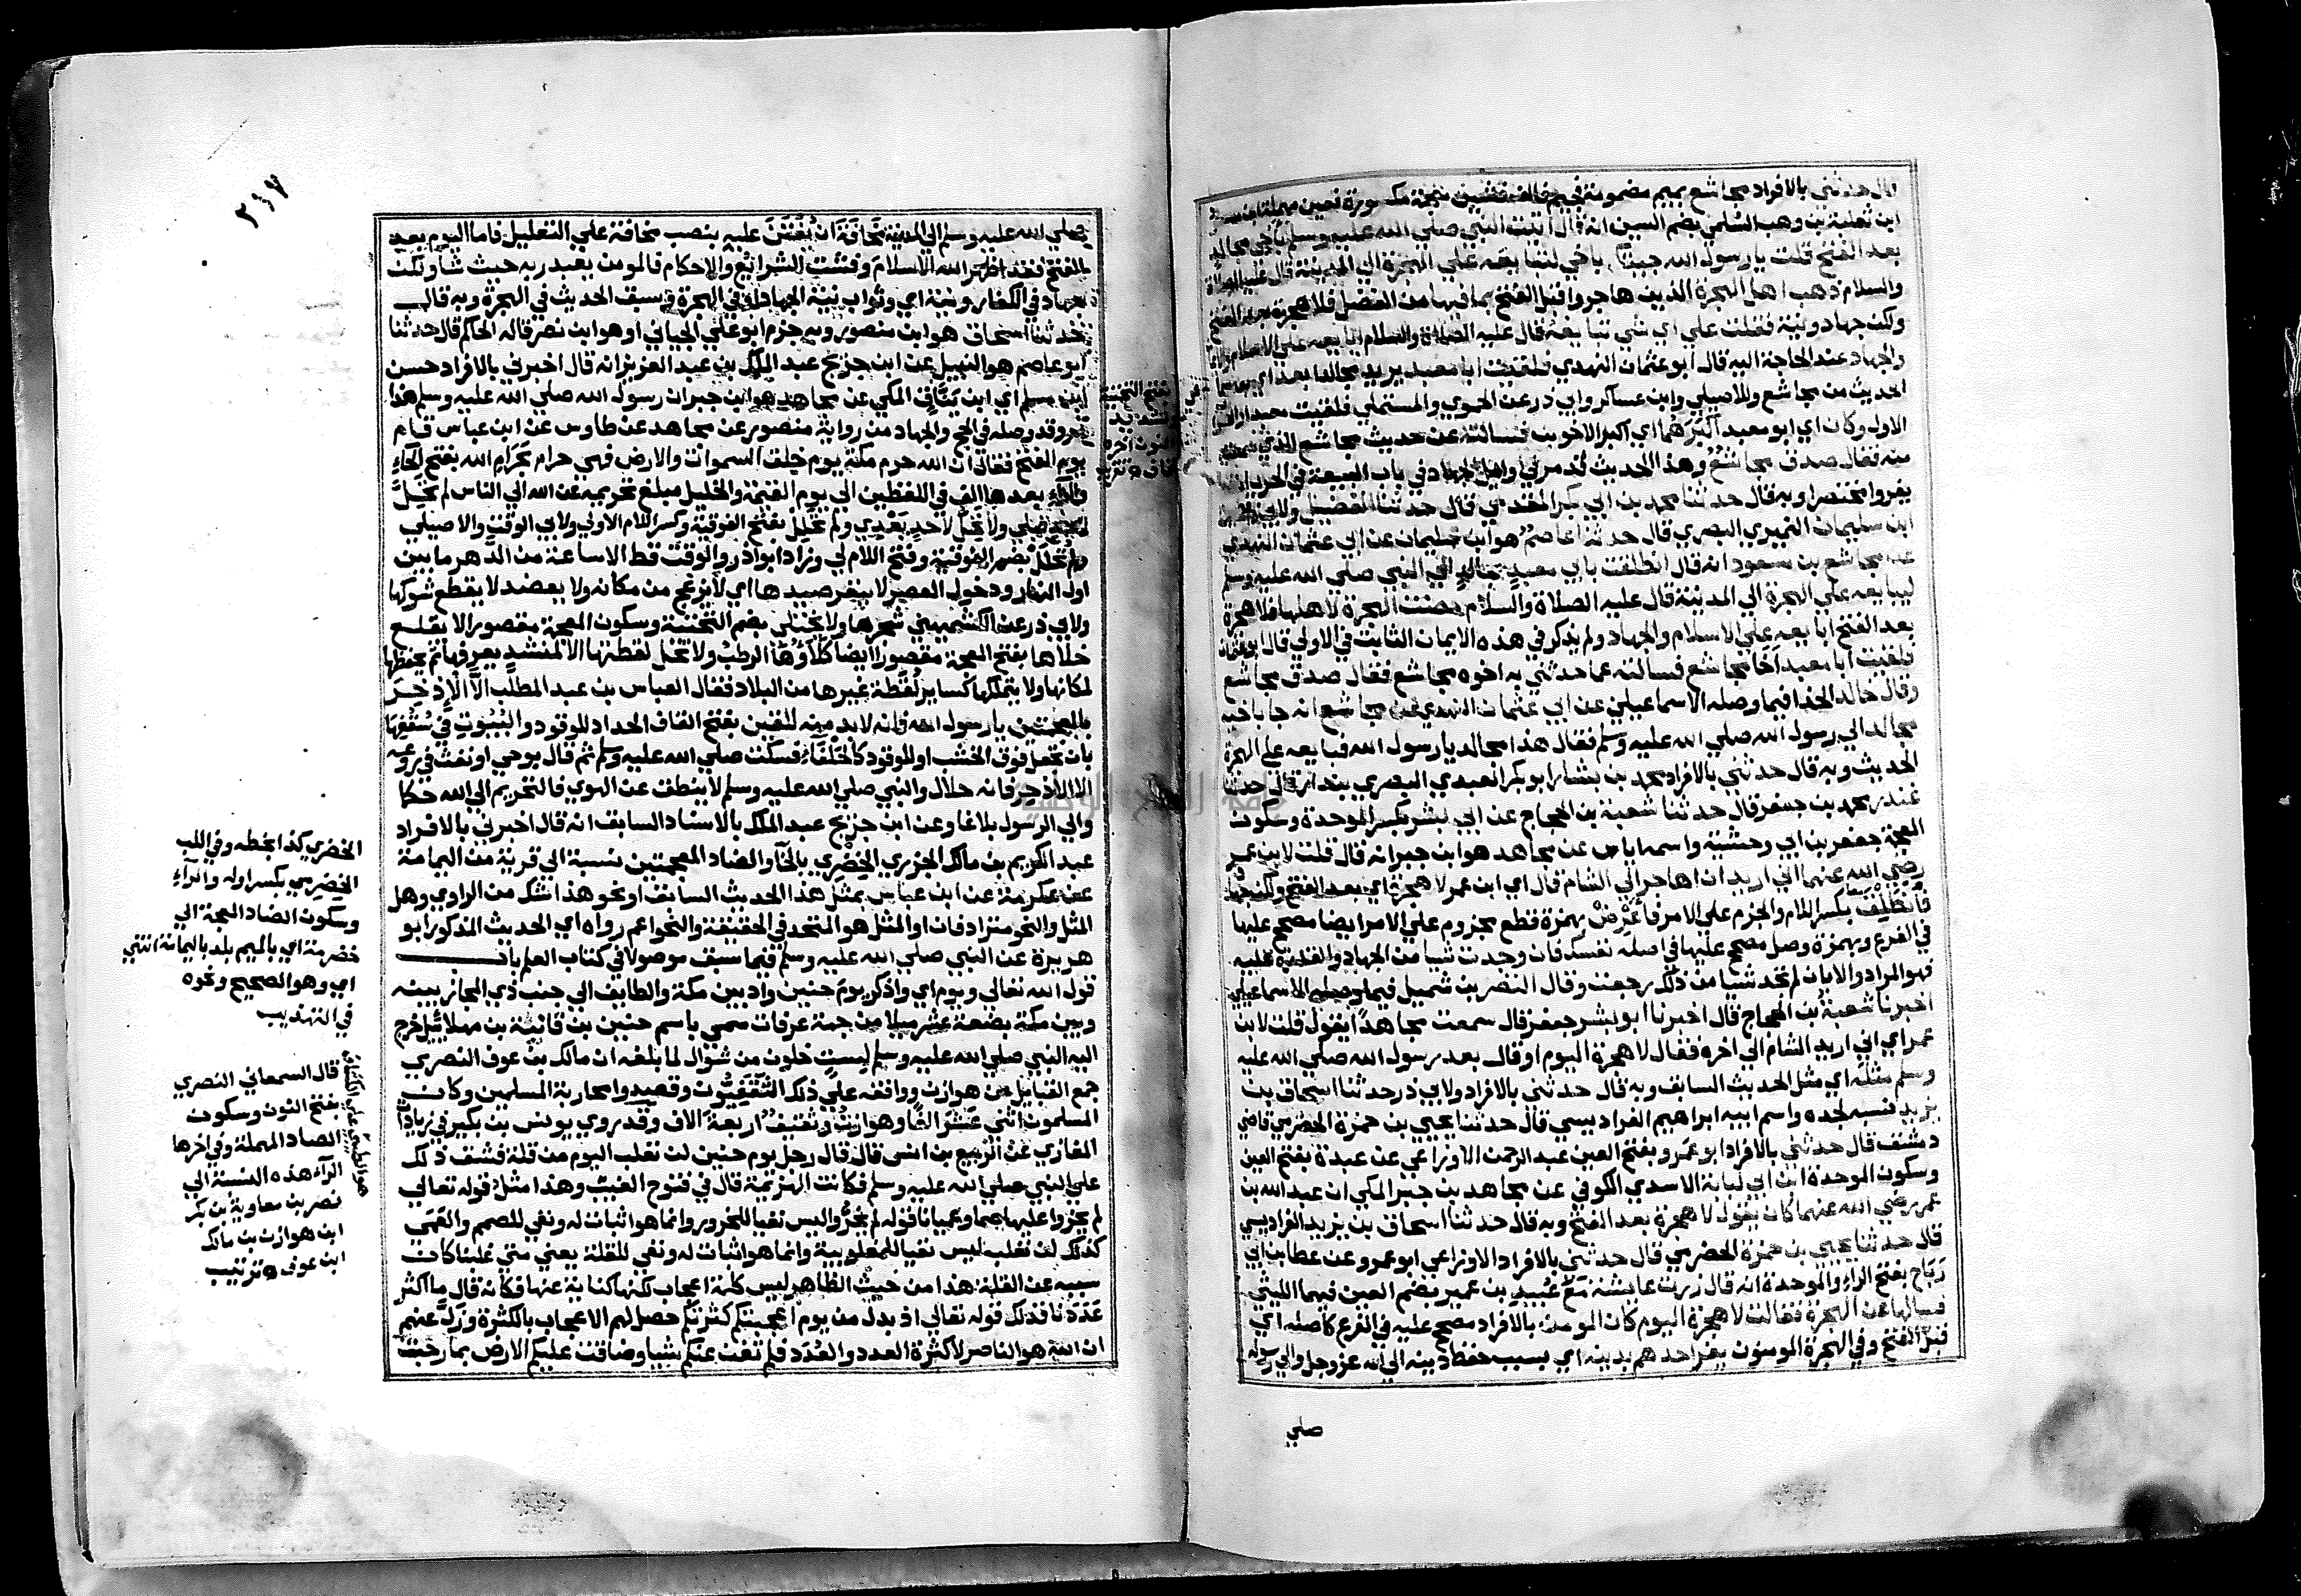 قال حدثني بالافراد مجاشع بميم مضمومة فجيم فالف فشين معجمة مكسورة فعين مهملة ابن مسعود
ابن ثعلبة بن وهب السلمي بضم السين انه قال اتيت النبي صلي الله عليه وسلم باخي مجالد
بعد الفتح قلت يا رسول الله جيتك باخي لتبايعه علي الهجرة الي المدينة قال عليه الصلاة
والسلام ذهب اهل الهجرة الذين هاجروا قبل الفتح بما فيها من الفضل فلا هجرة بعد الفتح
ولكن جهاد ونية فقلت علي اي شي تبايعه قال عليه الصلاة والسلام ابايعه علي الاسلام والايمان
والجهاد عند الحاجة اليه قال ابو عثمان النهدي فلقيت ابا معبد يريد مجالدا بعد اي بعد سماعي
الحديث من مجاشع وللاصيلي وابن عساكر وابي ذر عن الحموي والمستملي فلقيت معبدا والصواب
الاول وكان اي ابو معبد اكبرهما اي اكبر الاخوين فسالته عن حديث مجاشع الذي سمعته
منه فقال صدق مجاشع وهذا الحديث قد مر في اوايل الجهاد في باب البيعة في الحرب ان لا
يفروا مختصرا وبه قال حدثنا محمد بن ابي بكر المقدمي قال حدثنا الفضيل ولابي ذر فضيل
ابن سليمان النميري البصري قال حدثنا عاصم هو ابن سليمان عن ابي عثمان النهدي
عن مجاشع بن مسعود انه قال انطلقت بابي معبد مجالد الي النبي صلي الله عليه وسلم
ليبايعه علي الهجرة الي المدينة قال عليه الصلاة والسلام مضت الهجرة لاهلها فلا هجرة
بعد الفتح ابايعه علي الاسلام والجهاد ولم يذكر في هذه الايمان الثابت في الاولي قال ابو عثمان
فلقيت ابا معبد اخا مجاشع فسالته عما حدثني به اخوه مجاشع فقال صدق مجاشع
وقال خالد الحذا فيما وصله الاسماعيلي عن ابي عثمان النهدي عن مجاشع انه جا باخيه
مجالد الي رسول الله صلي الله عليه وسلم فقال هذا مجالد يا رسول الله فبايعه علي الهجرة
الحديث وبه قال حدثني بالافراد محمد بن بشار ابو بكر العبدي البصري بندار قال حدثنا
غندر محمد بن جعفر قال حدثنا شعبة بن الحجاج عن ابي بشر بكسر الموحدة وسكون
المعجمة جعفر بن ابي وحشية واسمه اياس عن مجاهد هو ابن جبر انه قال قلت لابن عمر
رضي الله عنهما اني اريد ان اهاجر الي الشام قال اي ابن عمر لا هجرة اي بعد الفتح ولكن جهاد
فانطلق بكسر اللام والجزم علي الامر فاعرض بهمزة قطع مجزوم علي الامر ايضا مصحح عليها
في الفرع وبهمزة وصل مصحح عليها في اصله نفسك فان وجدت شيا من الجهاد والقدرة عليه
فهو المراد والا بان لم تجد شيا من ذلك رجعت وقال النضر بن شميل فيما وصله الاسماعيلي
اخبرنا شعبة بن الحجاج قال اخبرنا ابو بشر جعفر قال سمعت مجاهدا يقول قلت لابن
عمر اي اني اريد الشام الي اخره فقال لا هجرة اليوم او قال بعد رسول الله صلي الله عليه
وسلم مثله اي مثل الحديث السابق وبه قال حدثني بالافراد ولابي ذر حدثنا اسحاق بن
يزيد نسبه لجده واسم ابيه ابراهيم الفراديسي قال حدثنا يحيي بن حمزة الحضرمي قاضي
دمشق قال حدثني بالافراد ابو عمرو بفتح العين عبد الرحمن الاوزاعي عن عبدة بفتح العين
وسكون الموحدة ابن ابي لبابة الاسدي الكوفي عن مجاهد بن جبر المكي ان عبد الله بن
عمر رضي الله عنهما كان يقول لا هجرة بعد الفتح وبه قال حدثنا اسحاق بن يزيد الفراديسي
قال حدثنا يحيي بن حمزة الحضرمي قال حدثني بالافراد الاوزاعي ابو عمرو عن عطا بن ابي
رباح بفتح الراء والموحدة انه قال زرت عايشة مع عبيد بن عمير بضم العين فيهما الليثي
فسالها عن الهجرة فقالت لا هجرة اليوم كان المومن بالافراد مصحح عليه في الفرع كاصله اي
قبل الفتح وفي الهجرة المومنون يفر احدهم بدينه اي بسبب حفظ دينه الي الله عز وجل والي رسوله
صلي
٢١٧
صلي الله عليه وسلم الي المدينة مخافة ان يفتن عليه بنصب مخافة علي التعليل فاما اليوم بعد
الفتح فقد اظهر الله الاسلام وفشت الشرايع والاحكام فالمومن يعبد ربه حيث شا ولكن
جهاد في الكفار ونية اي وثواب نية الجهاد او في الهجرة وسبق الحديث في الهجرة وبه قال
حدثنا اسحاق هو ابن منصور وبه جزم ابو علي الجياني او هو ابن نصر قاله الحاكم قال حدثنا
ابو عاصم هو النبيل عن ابن جريج عبد الملك بن عبد العزيز انه قال اخبرني بالافراد حسن
ابن مسلم اي ابن يناق المكي عن مجاهد هو ابن جبر ان رسول الله صلي الله عليه وسلم هذا
مرسل وقد وصله في الحج والجهاد من رواية منصور عن مجاهد عن طاوس عن ابن عباس قام
يوم الفتح فقال ان الله حرم مكة يوم خلق السموات والارض فهي حرام بحرام الله بفتح الحاء
والراء بعدها الف في اللفظين الي يوم القيمة والخليل مبلغ تحريمه عن الله الي الناس لم تحل
لاحد قبلي ولا تحل لاحد بعدي ولم تحلل بفتح الفوقية وكسر اللام الاولي ولابي الوقت والاصيلي
ولم تحلل بضم الفوقية وفتح اللام لي وزاد ابوا ذر والوقت قط الا ساعة من الدهر ما بين
اول النهار ودخول العصر لا ينفر صيدها اي لا يزعج من مكانه ولا يعضد لا يقطع شوكها
ولابي ذر عن الكشميهني شجرها ولا يختلي بضم التحتية وسكون المعجمة مقصورا لا يقلع
خلاها بفتح المعجمة مقصورا ايضا كلاؤها الرطب ولا تحل لقطتها الا لمنشد يعرفها ثم يحفظها
لمكانها ولا يتملكها كساير لقطة غيرها من البلاد فقال العباس بن عبد المطلب الا الاذخر
بالمعجمتين يا رسول الله فانه لا بد منه للقين بفتح القاف الحداد للوقود والبيوت في سقفها
بان تجعل فوق الخشب او للوقود كالحلفاء فسكت صلي الله عليه وسلم ثم قال بوحي او نفث في روعه
الا الاذخر فانه حلال والنبي صلي الله عليه وسلم لا ينطق عن الهوي فالتحريم الي الله حكما
والي الرسول بلاغا وعن ابن جريج عبد الملك بالاسناد السابق انه قال اخبرني بالافراد
عبد الكريم بن مالك الجزري الخضري بالخاء والضاد المعجمتين نسبة الي قرية من اليمامة
عن عكرمة عن ابن عباس بمثل هذا الحديث السابق او نحو هذا شك من الراوي وهل
المثل والنحو مترادفان او المثل هو المتحد في الحقيقة والنحو اعم رواه اي الحديث المذكور ابو
هريرة عن النبي صلي الله عليه وسلم فيما سبق موصولا في كتاب العلم باب
قول الله تعالي ويوم اي واذكر يوم حنين واد بين مكة والطايف الي جنب ذي المجاز بينه
وبين مكة بضعة عشر ميلا من جهة عرفات سمي باسم حنين بن قانية بن مهلاييل خرج
اليه النبي صلي الله عليه وسلم لست خلون من شوال لما بلغه ان مالك بن عوف النصري
جمع القبايل من هوازن ووافقه علي ذلك الثقفيون وقصدوا محاربة المسلمين وكان
المسلمون اثني عشر الفا وهوازن وثقيف اربعة الاف وقد روي يونس بن بكير في زيادات
المغازي عن الربيع بن انس قال قال رجل يوم حنين لن نغلب اليوم من قلة فشق ذلك
علي النبي صلي الله عليه وسلم فكانت الهزيمة قال في فتوح الغيب وهذا مثل قوله تعالي
لم يخروا عليها صما وعميانا قوله لم يخروا ليس نفيا للخرور وانما هو اثبات له ونفي للصمم والعمي
كذلك لن نغلب ليس نفيا للمغلوبية وانما هو اثبات له ونفي للقلة يعني متي غلبنا كان
سببه عن القلة هذا من حيث الظاهر ليس كلمة اعجاب لكنها كناية عنها فكانه قال ما اكثر
عددنا فذلك قوله تعالي اذ بدل من يوم اعجبتكم كثرتكم حصل لهم الاعجاب بالكثرة وزل عنهم
ان الله هو الناصر لا كثرة العدد والعدد فلم تغن عنكم شيا وضاقت عليكم الارض بما رحبت
بفتح التحتية
وتشديد
النون اخره
قاف ه ترتيب
الخضري كذا بخطه وفي اللب
الخضرمي بكسر اوله والراء
وسكون الضاد المعجمة الي
خضرمة اي بالميم بلد باليمامة انتهي
اي وهو الصحيح ونحوه
في التهذيب
قال السمعاني النصري
بفتح النون وسكون
الصاد المهملة وفي اخرها
الراء هذه النسبة الي
نصر بن معاوية بن بكر
ابن هوازن بن مالك
ابن عوف ه ترتيب